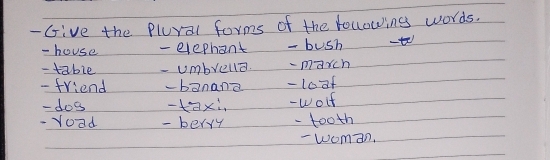 -Give the Plural forms of the following words.
-house -elephant -bush
-table -umbrella. -march
-friend -banana -loaf
-dog -taxi. -wolf
-road -berry -tooth
-woman.